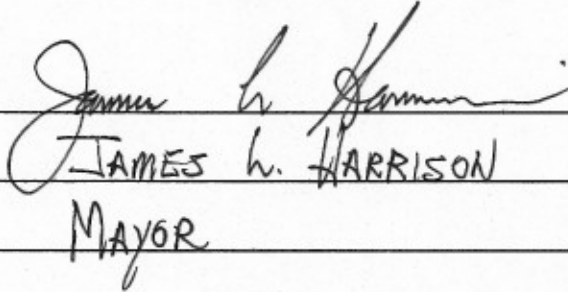 James L. Harrison
JAMES L. HARRISON
MAYOR